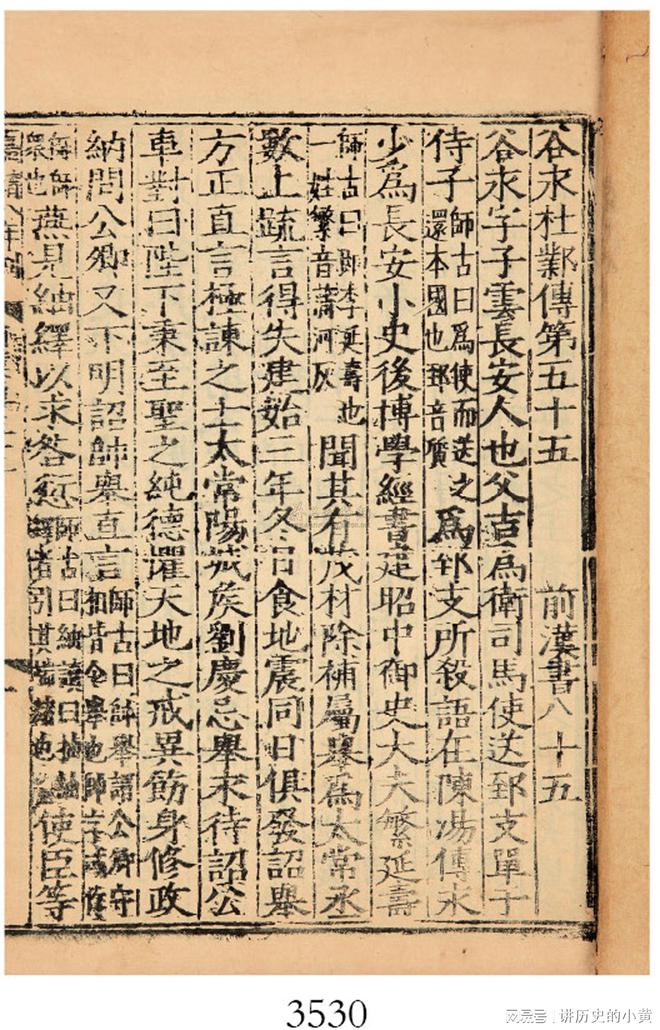 谷永杜鄴傳第五十五 前漢書八十五
谷永字子雲長安人也父吉為衛司馬使送郅支單于
侍子師古曰為使而送之還本國也郅音質為郅支所殺語在陳湯傳永
少為長安小史後博學經書建昭中御史大夫繁延壽
師古曰即李延壽也一姓繁音蒲河反聞其有茂材除補屬舉為太常丞
數上疏言得失建始三年冬日食地震同日俱發詔舉
方正直言極諫之士太常陽城侯劉慶忌舉永待詔公
車對曰陛下秉至聖之純德懼天地之戒異飭身修政
納問公卿又下明詔帥舉直言師古曰帥舉謂公卿守相皆令舉也帥
燕見紬繹以求咎愆師古曰紬讀曰抽繹者引其端緒也使臣等
3530
讲历史的小黄